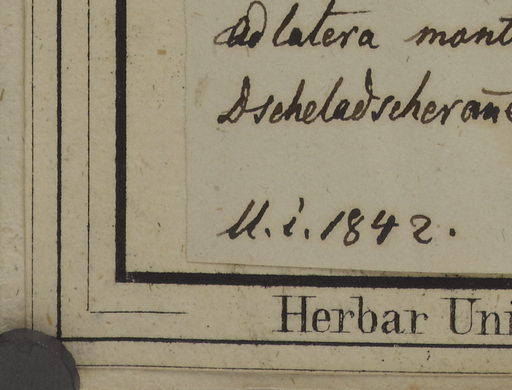 Ad latera mont
Dscheladscheran
U. i. 1842.
Herbar Uni